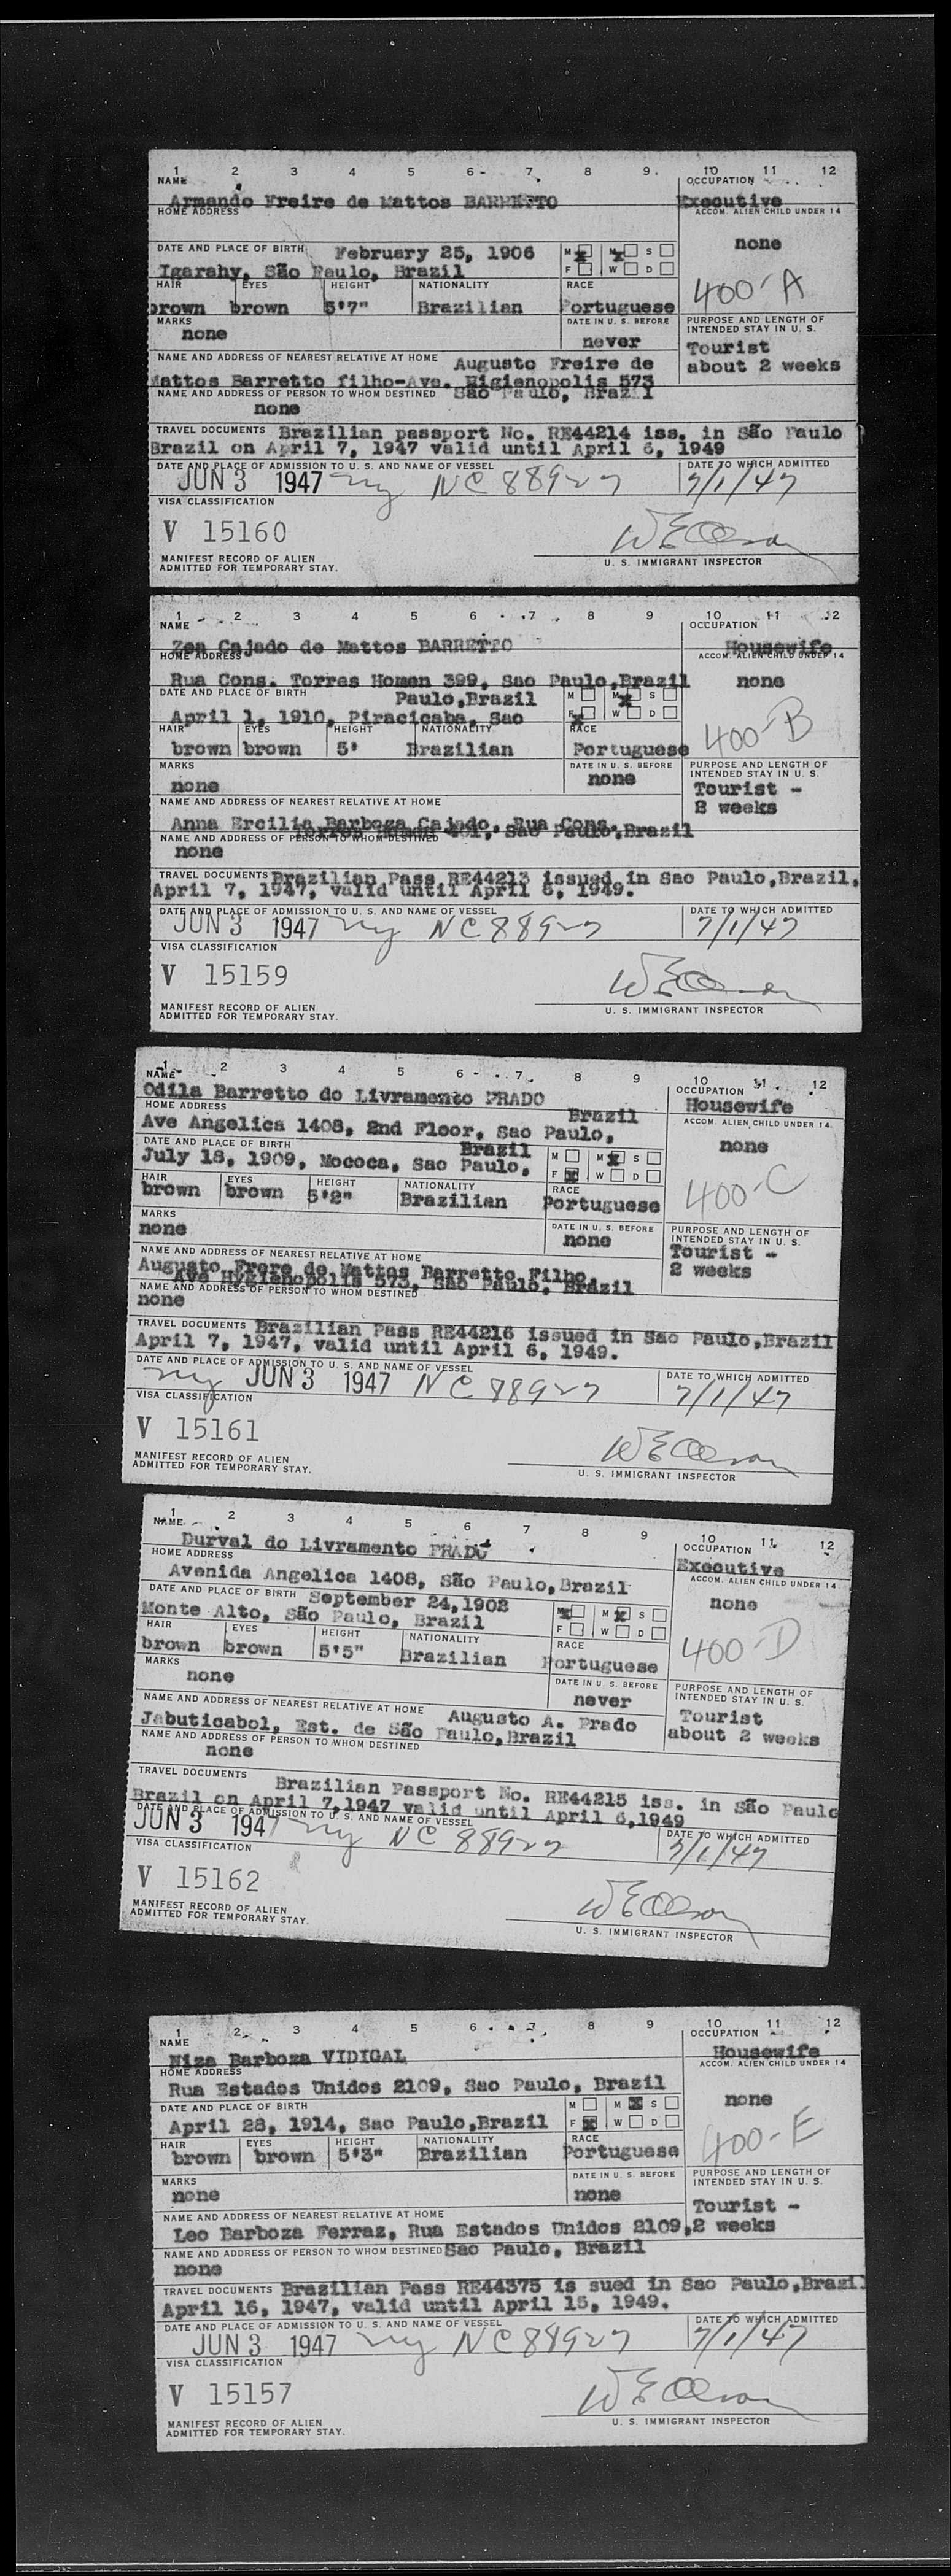 1 2 3 4 5 6 7 8 9 10 11 12
NAME OCCUPATION
Armando Freire de Mattos BARRETTO Executive
HOME ADDRESS ACCOM. ALIEN CHILD UNDER 14
none
DATE AND PLACE OF BIRTH February 25, 1906 M X M X S
Igarahy, São Paulo, Brazil F W D
HAIR EYES HEIGHT NATIONALITY RACE 400-A
brown brown 5'7" Brazilian Portuguese
MARKS DATE IN U. S. BEFORE PURPOSE AND LENGTH OF
none never INTENDED STAY IN U. S.
Tourist
NAME AND ADDRESS OF NEAREST RELATIVE AT HOME Augusto Freire de about 2 weeks
Mattos Barretto filho-Ave. Higienopolis 573
NAME AND ADDRESS OF PERSON TO WHOM DESTINED Sao Paulo, Brazil
none
TRAVEL DOCUMENTS Brazilian passport No. RE44214 iss. in São Paulo
Brazil on April 7, 1947 valid until April 6, 1949
DATE AND PLACE OF ADMISSION TO U. S. AND NAME OF VESSEL DATE TO WHICH ADMITTED
JUN 3 1947 ny NC 88927 7/1/47
VISA CLASSIFICATION
V 15160
W E Olson
MANIFEST RECORD OF ALIEN
ADMITTED FOR TEMPORARY STAY. U. S. IMMIGRANT INSPECTOR
1 2 3 4 5 6 7 8 9 10 11 12
NAME OCCUPATION
Zea Cajado de Mattos BARRETTO Housewife
HOME ADDRESS ACCOM. ALIEN CHILD UNDER 14
Rua Cons. Torres Homen 399, Sao Paulo,Brazil none
DATE AND PLACE OF BIRTH Paulo,Brazil M M X S
April 1, 1910, Piracicaba, Sao F X W D
HAIR EYES HEIGHT NATIONALITY RACE 400-B
brown brown 5' Brazilian Portuguese
MARKS DATE IN U. S. BEFORE PURPOSE AND LENGTH OF
none none INTENDED STAY IN U. S.
Tourist -
NAME AND ADDRESS OF NEAREST RELATIVE AT HOME 2 weeks
Anna Ercilia Barboza Cajado, Rua Cons.
Torres Homen 401, Sao Paulo,Brazil
NAME AND ADDRESS OF PERSON TO WHOM DESTINED
none
TRAVEL DOCUMENTS Brazilian Pass RE44213 issued in Sao Paulo,Brazil,
April 7, 1947, valid until April 6, 1949.
DATE AND PLACE OF ADMISSION TO U. S. AND NAME OF VESSEL DATE TO WHICH ADMITTED
JUN 3 1947 ny NC 88927 7/1/47
VISA CLASSIFICATION
V 15159
W E Olson
MANIFEST RECORD OF ALIEN
ADMITTED FOR TEMPORARY STAY. U. S. IMMIGRANT INSPECTOR
1 2 3 4 5 6 7 8 9 10 11 12
NAME OCCUPATION
Odila Barretto do Livramento PRADO Housewife
HOME ADDRESS Brazil ACCOM. ALIEN CHILD UNDER 14
Ave Angelica 1408, 2nd Floor, Sao Paulo,
DATE AND PLACE OF BIRTH Brazil M M X S none
July 18, 1909, Mococa, Sao Paulo, F X W D
HAIR EYES HEIGHT NATIONALITY RACE 400-C
brown brown 5'2" Brazilian Portuguese
MARKS DATE IN U. S. BEFORE PURPOSE AND LENGTH OF
none none INTENDED STAY IN U. S.
Tourist -
NAME AND ADDRESS OF NEAREST RELATIVE AT HOME 2 weeks
Augusto Frere de Mattos Barretto Filho,
Ave Hygienopolis 573, Sao Paulo, Brazil
NAME AND ADDRESS OF PERSON TO WHOM DESTINED
none
TRAVEL DOCUMENTS Brazilian Pass RE44216 issued in Sao Paulo,Brazil
April 7, 1947, valid until April 6, 1949.
DATE AND PLACE OF ADMISSION TO U. S. AND NAME OF VESSEL DATE TO WHICH ADMITTED
ny JUN 3 1947 NC 88927 7/1/47
VISA CLASSIFICATION
V 15161
W E Olson
MANIFEST RECORD OF ALIEN
ADMITTED FOR TEMPORARY STAY. U. S. IMMIGRANT INSPECTOR
1 2 3 4 5 6 7 8 9 10 11 12
NAME OCCUPATION
Durval do Livramento PRADO Executive
HOME ADDRESS ACCOM. ALIEN CHILD UNDER 14
Avenida Angelica 1408, São Paulo,Brazil
DATE AND PLACE OF BIRTH September 24,1902 M X M X S none
Monte Alto, São Paulo, Brazil F W D
HAIR EYES HEIGHT NATIONALITY RACE 400-D
brown brown 5'5" Brazilian Portuguese
MARKS DATE IN U. S. BEFORE PURPOSE AND LENGTH OF
none never INTENDED STAY IN U. S.
Tourist
NAME AND ADDRESS OF NEAREST RELATIVE AT HOME Augusto A. Prado about 2 weeks
Jabuticabol, Est. de São Paulo,Brazil
NAME AND ADDRESS OF PERSON TO WHOM DESTINED
none
TRAVEL DOCUMENTS Brazilian Passport No. RE44215 iss. in São Paulo
Brazil on April 7,1947 valid until April 6,1949
DATE AND PLACE OF ADMISSION TO U. S. AND NAME OF VESSEL DATE TO WHICH ADMITTED
JUN 3 1947 ny NC 88927 7/1/47
VISA CLASSIFICATION
V 15162
W E Olson
MANIFEST RECORD OF ALIEN
ADMITTED FOR TEMPORARY STAY. U. S. IMMIGRANT INSPECTOR
1 2 3 4 5 6 7 8 9 10 11 12
NAME OCCUPATION
Niza Barboza VIDIGAL Housewife
HOME ADDRESS ACCOM. ALIEN CHILD UNDER 14
Rua Estados Unidos 2109, Sao Paulo, Brazil
DATE AND PLACE OF BIRTH M M X S none
April 28, 1914, Sao Paulo,Brazil F X W D
HAIR EYES HEIGHT NATIONALITY RACE 400-E
brown brown 5'3" Brazilian Portuguese
MARKS DATE IN U. S. BEFORE PURPOSE AND LENGTH OF
none none INTENDED STAY IN U. S.
NAME AND ADDRESS OF NEAREST RELATIVE AT HOME Tourist -
Leo Barboza Ferraz, Rua Estados Unidos 2109, 2 weeks
NAME AND ADDRESS OF PERSON TO WHOM DESTINED Sao Paulo, Brazil
none
TRAVEL DOCUMENTS Brazilian Pass RE44375 is sued in Sao Paulo,Brazil
April 16, 1947, valid until April 15, 1949.
DATE AND PLACE OF ADMISSION TO U. S. AND NAME OF VESSEL DATE TO WHICH ADMITTED
JUN 3 1947 ny NC 88927 7/1/47
VISA CLASSIFICATION
V 15157
W E Olson
MANIFEST RECORD OF ALIEN
ADMITTED FOR TEMPORARY STAY. U. S. IMMIGRANT INSPECTOR